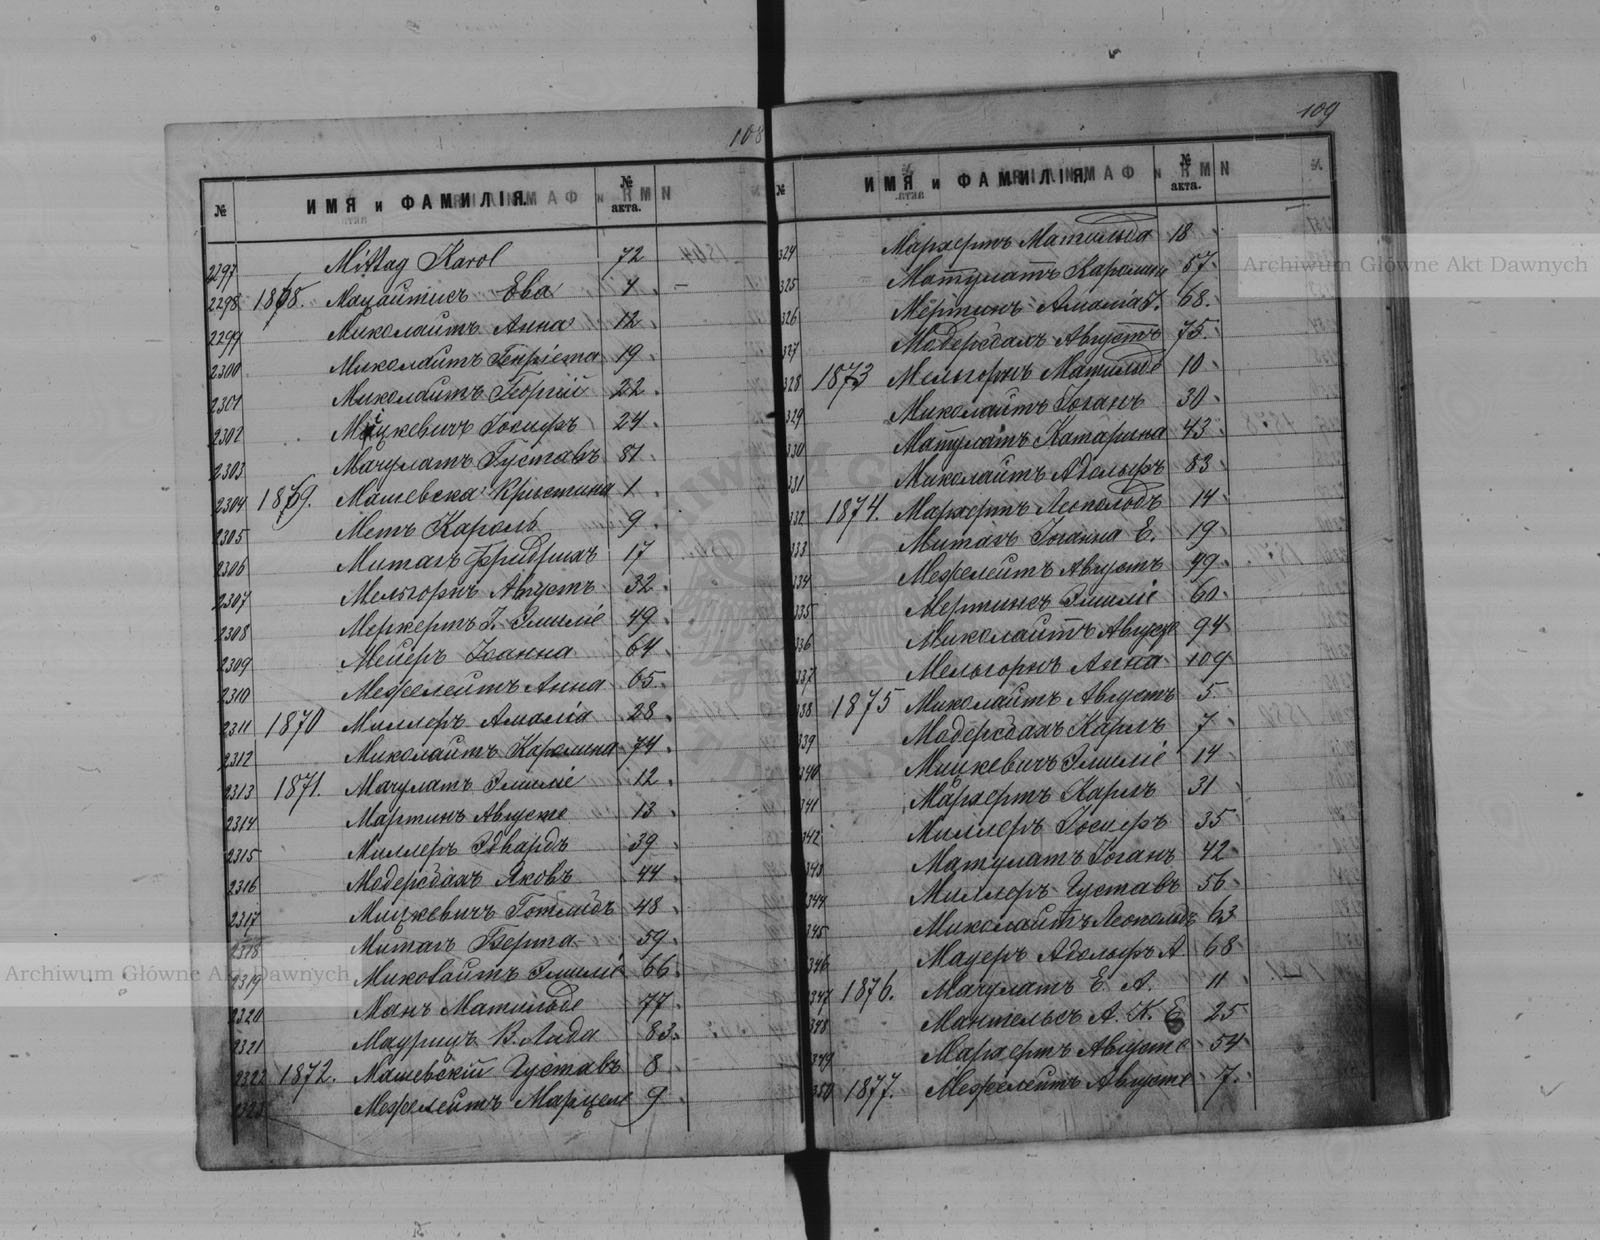 108
№ ИМЯ и ФАМИЛІЯ. № акта.
2297 Mittag Karol 72
2298 1868. Мацайтисъ Ева 4
2299 Миколаитъ Анна 12
2300 Миколаитъ Генріета 19
2301 Миколаитъ Георгій 22
2302 Мицкевичъ Іосифъ 24
2303 Мачулатъ Густавъ 81
2304 1869. Машевска Кристина 1
2305 Метъ Кароль 9
2306 Митагъ Фридрихъ 17
2307 Мельгорнъ Августъ 32
2308 Меркертъ І. Эмиліе 49
2309 Мейеръ Іоанна 64
2310 Мефелеитъ Анна 65
2311 1870 Миллеръ Амалія 28
2312 Миколаитъ Каролина 74
2313 1871. Мачулатъ Эмиліе 12
2314 Мартинъ Августе 13
2315 Миллеръ Эдвардъ 39
2316 Модерсбахъ Яковъ 44
2317 Мицкевичъ Готлибъ 48
2318 Митагъ Берта 59
2319 Миковаитъ Эмиліе 66
2320 Манъ Матильде 77
2321 Маурицъ В. Лида 83
2322 1872. Машевскій Густавъ 8
2323 Мефелеитъ Марцеле 9
109
№ ИМЯ и ФАМИЛІЯ. № акта.
324 Мархертъ Матильда 18
325 Матулатъ Каролине 57
326 Мертинъ Амалія Г. 68.
327 Модерсбахъ Августъ 75.
328 1873 Мельгорнъ Матильде 10
329 Миколаитъ Іоганъ 30
330 Матулатъ Катарина 43
331 Миколаитъ Адольфъ 83
332 1874. Мархертъ Леопольдъ 14
333 Митагъ Іоганна Е. 19
334 Мефелеитъ Августъ 49
335 Мертинсъ Эмиліе 60
336 Миколаитъ Августе 94
337 Мельгорнъ Анна 109
338 1875 Миколаитъ Августъ 5
339 Модерсбахъ Карлъ 7
340 Мицкевичъ Эмиліе 14
341 Мархертъ Карлъ 31
342 Миллеръ Іосифъ 35
343 Матулатъ Іоганъ 42
344 Миллеръ Густавъ 56
345 Миколаитъ Леопольдъ 63
346 Мауеръ Адольфъ А. 68
347 1876. Мачулатъ Е. А. 11
348 Мантельсъ А. К. Е. 25
349 Мархертъ Августе 54
350 1877. Мефелеитъ Августе 7.
Archiwum Główne Akt Dawnych
Archiwum Główne Akt Dawnych